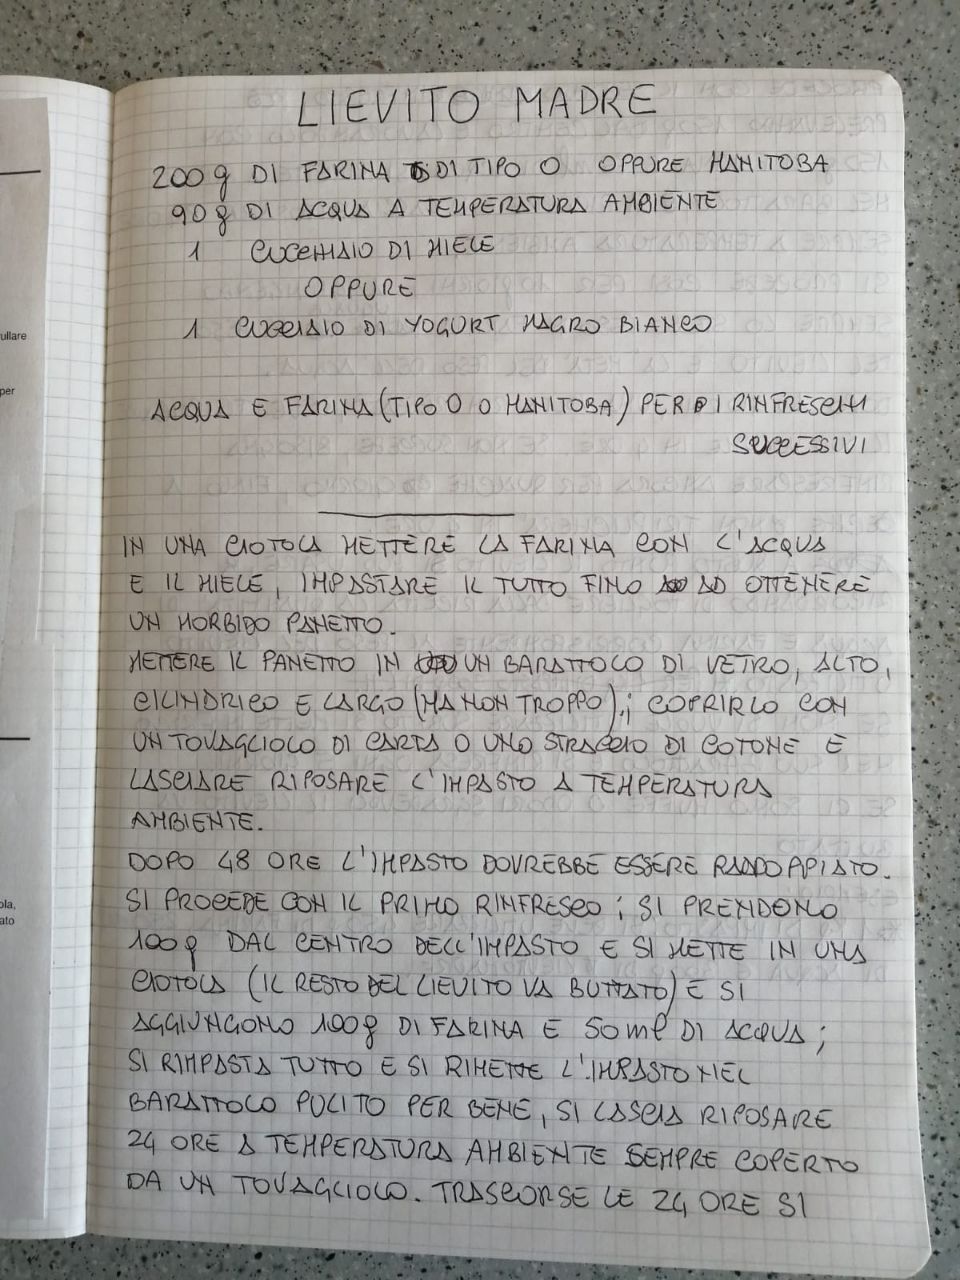 LIEVITO MADRE
200 g DI FARINA DI TIPO 0 OPPURE MANITOBA
90 g DI ACQUA A TEMPERATURA AMBIENTE
1 CUCCHIAIO DI MIELE
OPPURE
1 CUCCHIAIO DI YOGURT MAGRO BIANCO
ACQUA E FARINA (TIPO 0 O MANITOBA) PER I RINFRESCHI
SUCCESSIVI
IN UNA CIOTOLA METTERE LA FARINA CON L'ACQUA
E IL MIELE, IMPASTARE IL TUTTO FINO AD OTTENERE
UN MORBIDO PANETTO.
METTERE IL PANETTO IN UN BARATTOLO DI VETRO, ALTO,
CILINDRICO E LARGO (MA NON TROPPO).; COPRIRLO CON
UN TOVAGLIOLO DI CARTA O UNO STRACCIO DI COTONE E
LASCIARE RIPOSARE L'IMPASTO A TEMPERATURA
AMBIENTE.
DOPO 48 ORE L'IMPASTO DOVREBBE ESSERE RADDOPIATO.
SI PROCEDE CON IL PRIMO RINFRESCO; SI PRENDONO
100 g DAL CENTRO DELL'IMPASTO E SI METTE IN UNA
CIOTOLA (IL RESTO DEL LIEVITO VA BUTTATO) E SI
AGGIUNGONO 100 g DI FARINA E 50 ml DI ACQUA;
SI RIMPASTA TUTTO E SI RIMETTE L'IMPASTO NEL
BARATTOLO PULITO PER BENE, SI LASCIA RIPOSARE
24 ORE A TEMPERATURA AMBIENTE SEMPRE COPERTO
DA UN TOVAGLIOLO. TRASCORSE LE 24 ORE SI